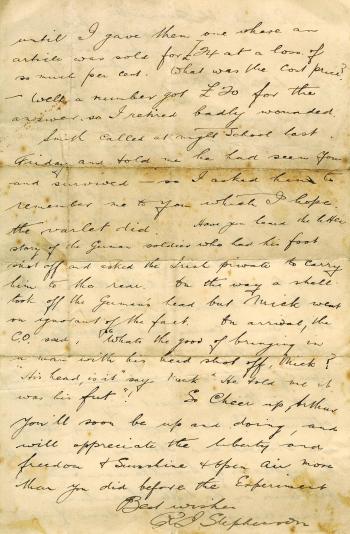 until I gave them one where an
article was sold for £74 at a loss of
so much per cent. What was the cost price?
— Well a number got £70 for the
answer, so I retired badly wounded.
Smith called at night School last
Friday and told me he had seen you
and survived — so I asked him to
remember me to you which I hope
the varlet did. Have you heard the
story of the German soldier who had his foot
shot off and asked the Irish private to carry
him to the rear. On the way a shell
took off the German's head but Mick went
on ignorant of the fact. On arrival, the
C.O. said, "What's the good of bringing in
a man with his head shot off, Mick?
"His head is it" says Mick "He told me it
was his foot". So Cheer up, Arthur
You'll soon be up and doing, and
will appreciate the liberty and
freedom & Sunshine & open air more
than you did before the Experiment
Best wishes
Stephenson